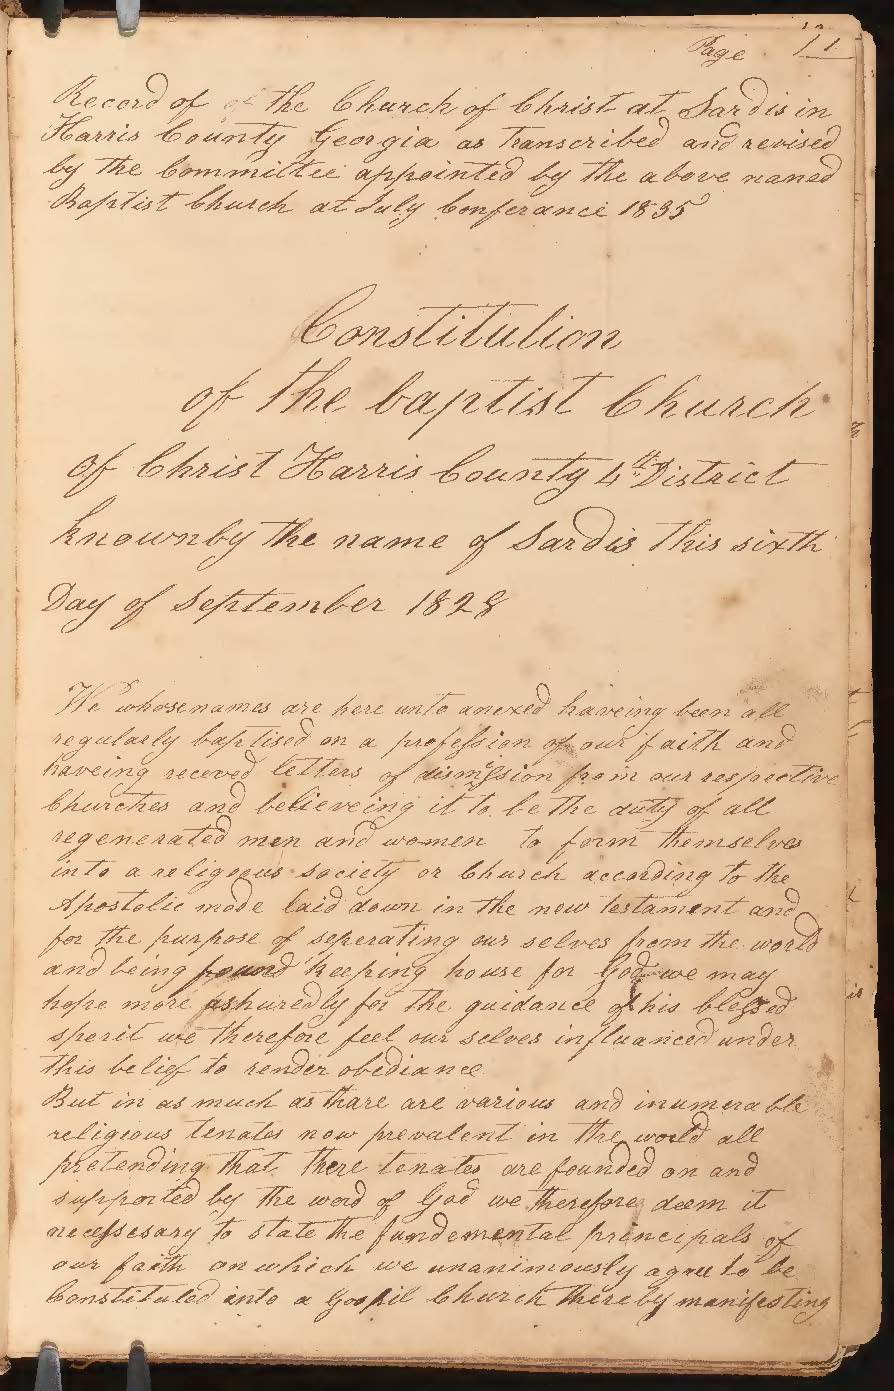 Page 1
Record of of the Church of Christ at Sardis in
Harris County Georgia as Transcribed and revised
by the Committee appointed by the above named
Baptist Church at July Conferance 1835
Constitution
of the baptist Church
of Christ Harris County 4th District
known by the name of Sardis this sixth
Day of September 1828
We whose names are here unto anexed haveing been all
regularly baptised on a profession of our faith and
haveing receved letters of dismission from our respective
Churches and believeing it to be the duty of all
regenerated men and women to form themselves
into a religeous society or Church according to the
Apostolic mode laid down in the new testament and
for the purpose of seperating our selves from the world
and being found keeping house for God we may
hope more ashuredly for the guidance of his blessed
sperit we therefore feel our selves influanced under
this belief to render obediance
But in as much as thare are various and inumerable
religeous tenates now prevalent in the world all
pretending that there tenates are founded on and
supported by the word of God we therefore deem it
necessesary to state the fundemental principals of
our faith on which we unanimously agree to be
Constituted into a Gospil Church thereby manifesting